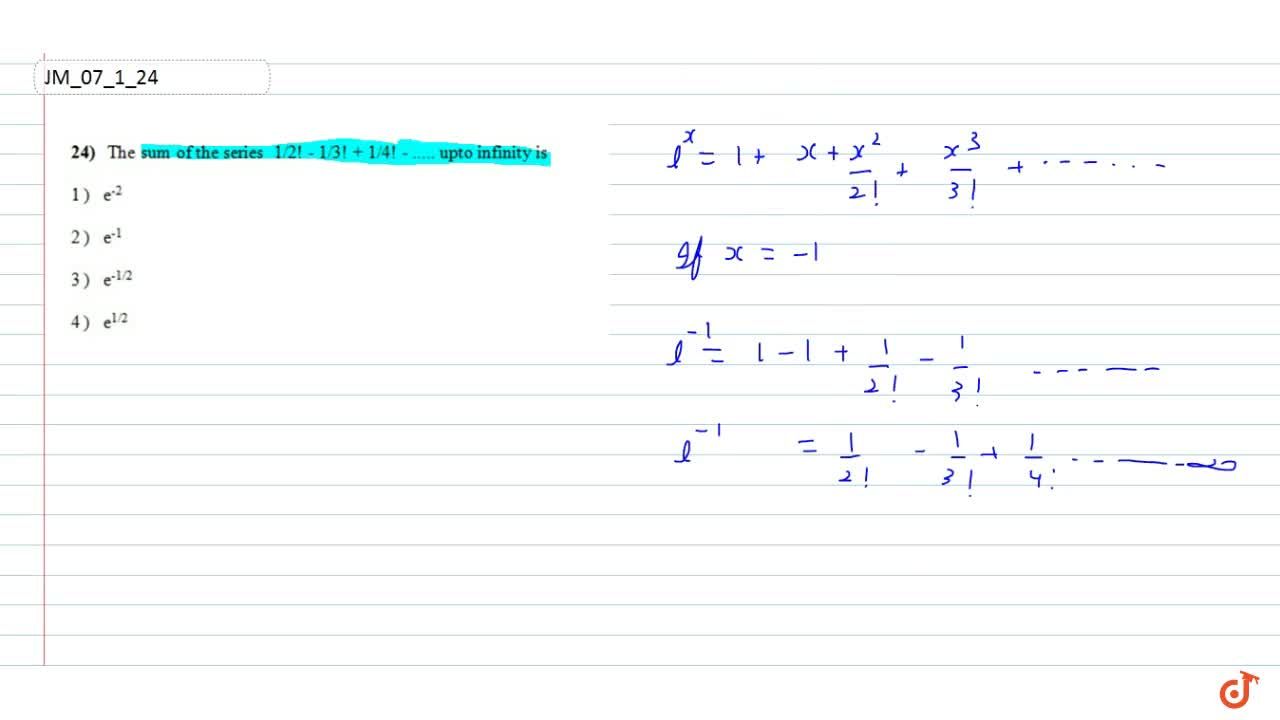 JM_07_1_24
24) The sum of the series 1/2! - 1/3! + 1/4! - ..... upto infinity is
1) e^-2
2) e^-1
3) e^-1/2
4) e^1/2
e^x = 1 + x + x^2/2! + x^3/3! + ..........
If x = -1
e^-1 = 1 - 1 + 1/2! - 1/3! ..........
e^-1 = 1/2! - 1/3! + 1/4! ..........∞